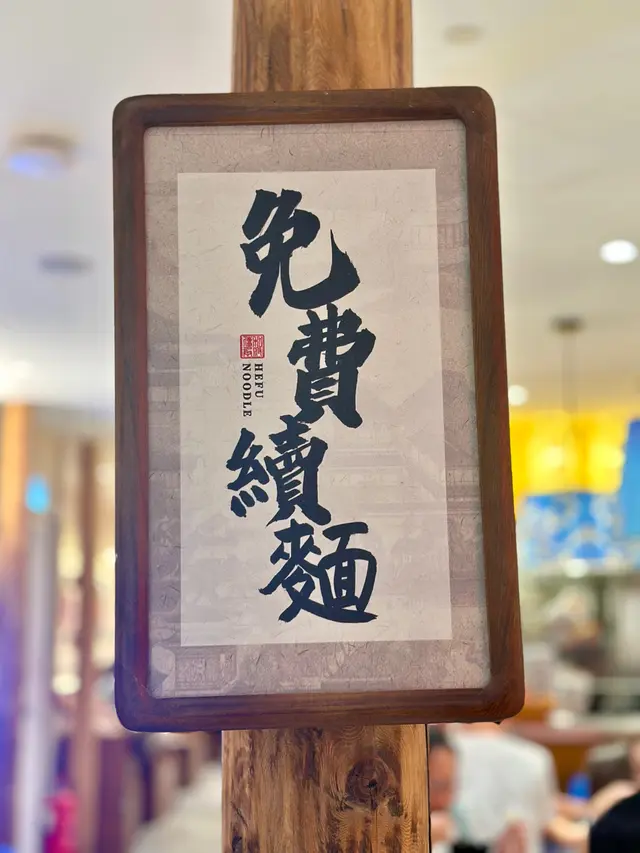 免費續麵
HEFU
NOODLE